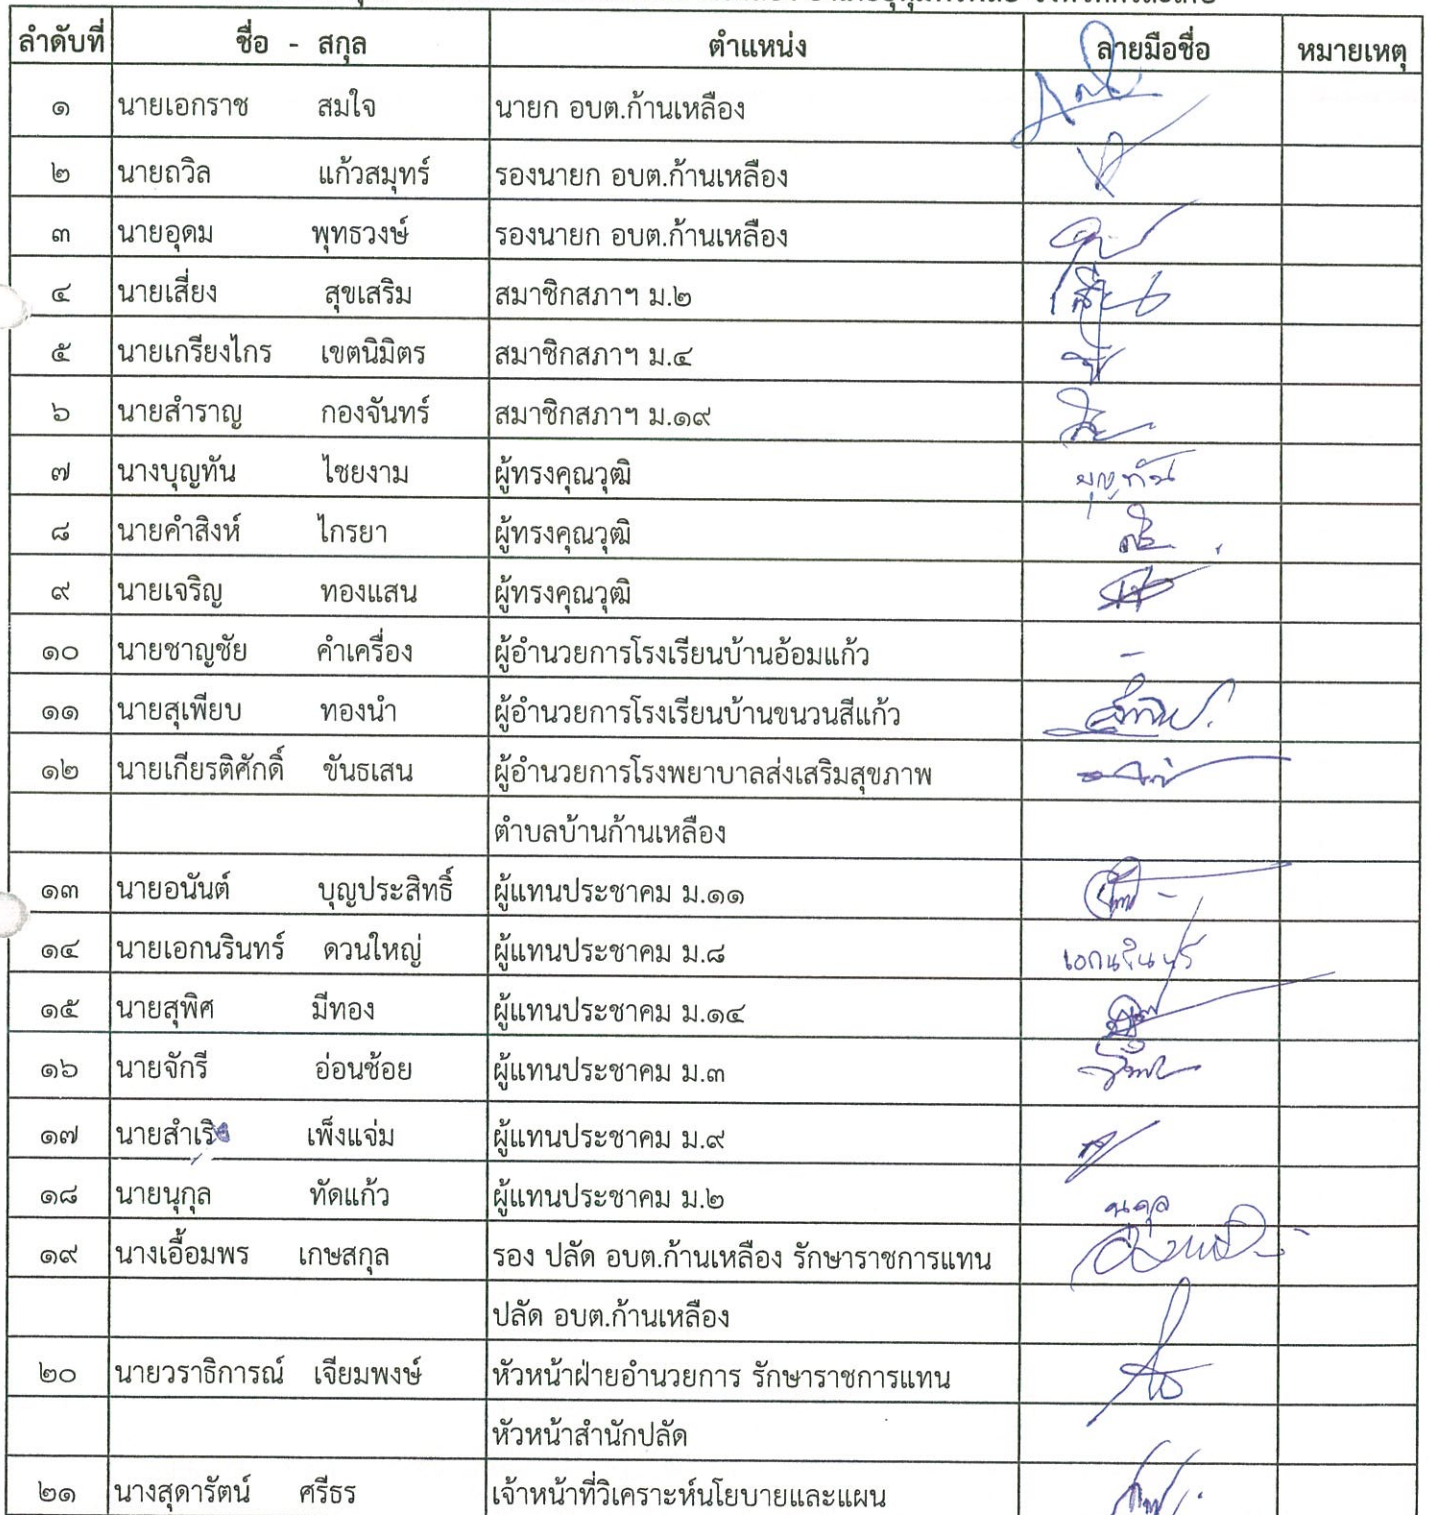 ลำดับที่ ชื่อ - สกุล ตำแหน่ง ลายมือชื่อ หมายเหตุ
๑ นายเอกราช สมใจ นายก อบต.ก้านเหลือง
๒ นายถวิล แก้วสมุทร์ รองนายก อบต.ก้านเหลือง
๓ นายอุดม พุทธวงษ์ รองนายก อบต.ก้านเหลือง
๔ นายเสี่ยง สุขเสริม สมาชิกสภาฯ ม.๒
๕ นายเกรียงไกร เขตนิมิตร สมาชิกสภาฯ ม.๔
๖ นายสำราญ กองจันทร์ สมาชิกสภาฯ ม.๑๙
๗ นางบุญทัน ไชยงาม ผู้ทรงคุณวุฒิ บุญทัน
๘ นายคำสิงห์ ไกรยา ผู้ทรงคุณวุฒิ
๙ นายเจริญ ทองแสน ผู้ทรงคุณวุฒิ
๑๐ นายชาญชัย คำเครื่อง ผู้อำนวยการโรงเรียนบ้านอ้อมแก้ว -
๑๑ นายสุเพียบ ทองนำ ผู้อำนวยการโรงเรียนบ้านขนวนสีแก้ว
๑๒ นายเกียรติศักดิ์ ขันธเสน ผู้อำนวยการโรงพยาบาลส่งเสริมสุขภาพ
ตำบลบ้านก้านเหลือง
๑๓ นายอนันต์ บุญประสิทธิ์ ผู้แทนประชาคม ม.๑๑
๑๔ นายเอกนรินทร์ ดวนใหญ่ ผู้แทนประชาคม ม.๘ เอกนรินทร์
๑๕ นายสุพิศ มีทอง ผู้แทนประชาคม ม.๑๔
๑๖ นายจักรี อ่อนช้อย ผู้แทนประชาคม ม.๓
๑๗ เพ็งแจ่ม ผู้แทนประชาคม ม.๙
๑๘ นายนุกูล ทัดแก้ว ผู้แทนประชาคม ม.๒ นุกูล
๑๙ นางเอื้อมพร เกษสกุล รอง ปลัด อบต.ก้านเหลือง รักษาราชการแทน
ปลัด อบต.ก้านเหลือง
๒๐ นายวราธิการณ์ เจียมพงษ์ หัวหน้าฝ่ายอำนวยการ รักษาราชการแทน
หัวหน้าสำนักปลัด
๒๑ นางสุดารัตน์ ศรีธร เจ้าหน้าที่วิเคราะห์นโยบายและแผน